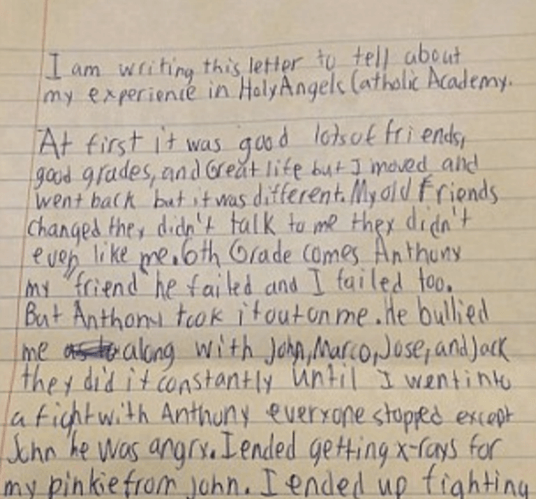 I am writing this letter to tell about
my experience in Holy Angels Catholic Academy.
At first it was good lots of friends,
good grades, and Great life but I moved and
went back but it was different. My old friends
changed they didn't talk to me they didn't
even like me. 6th Grade comes Anthony
my "friend" he failed and I failed too.
But Anthony took it out on me. He bullied
me along with John, Marco, Jose, and Jack
they did it constantly until I went into
a fight with Anthony everyone stopped except
John he was angry. I ended getting x-rays for
my pinkie from john. I ended up fighting